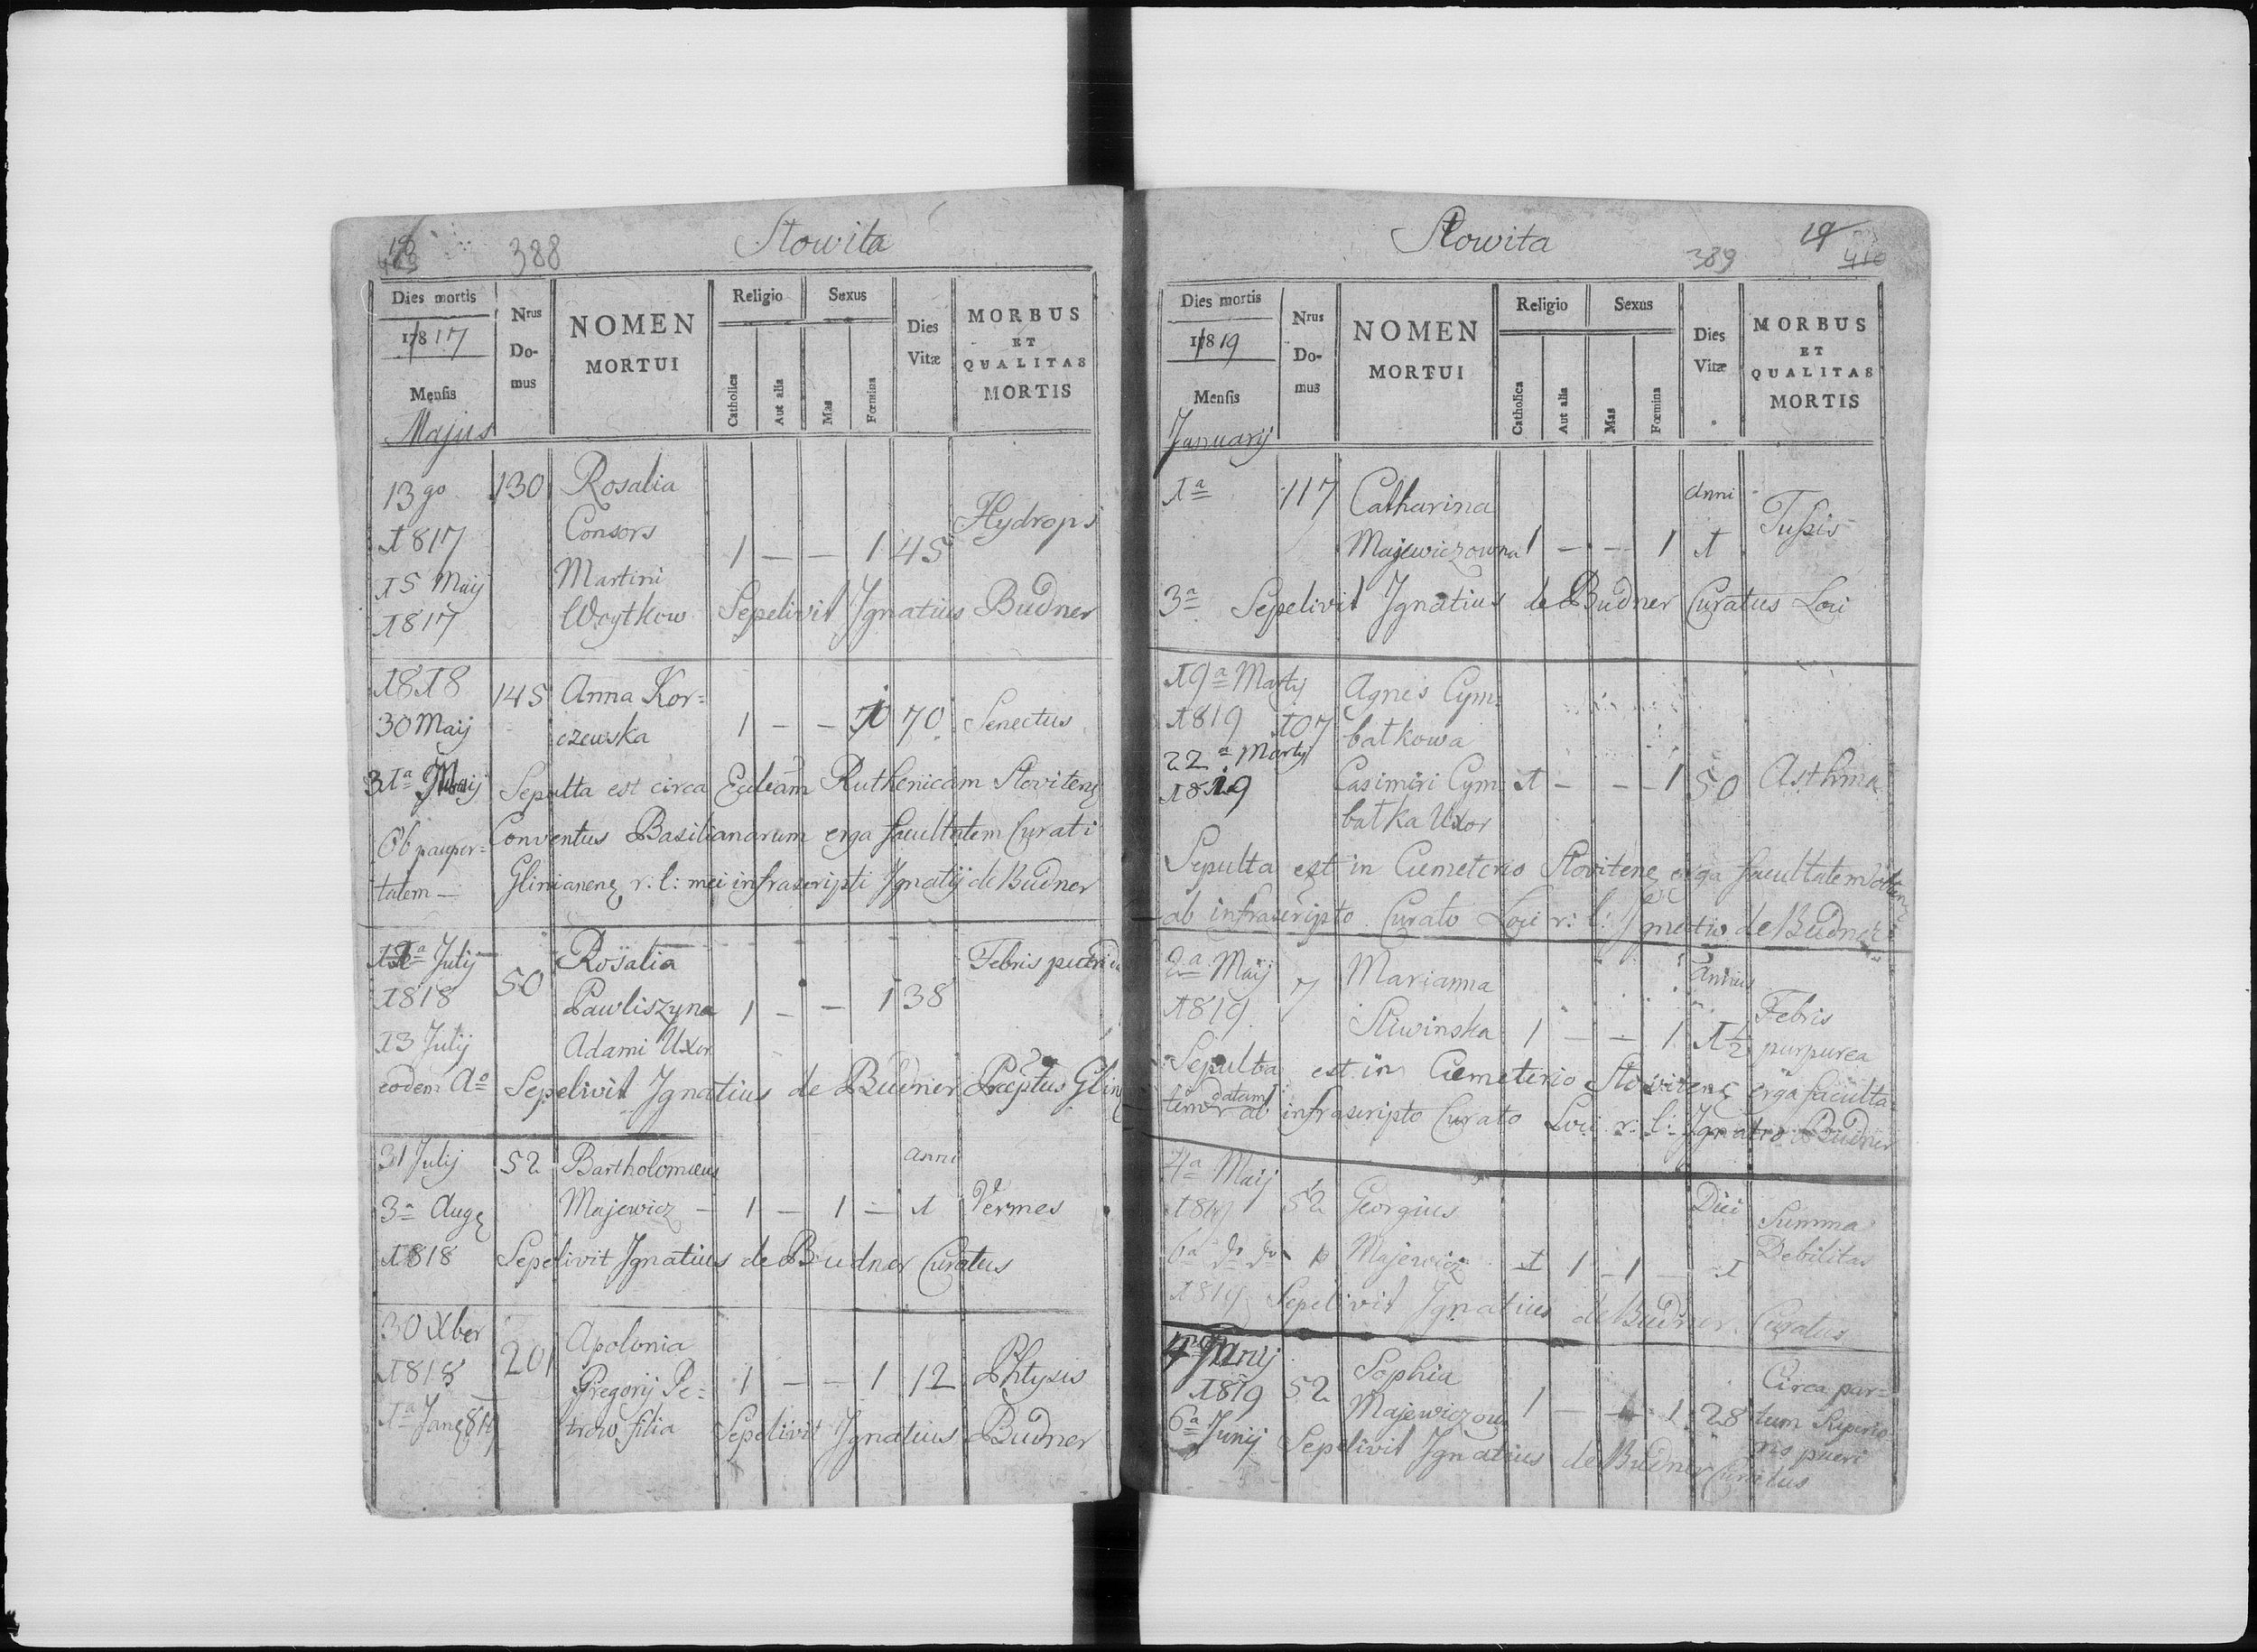 388
Slowita
Dies mortis
Nrus
Do-
mus
NOMEN
MORTUI
Religio
Sexus
Dies
Vitæ
MORBUS
ET
QUALITAS
MORTIS
1817
Mensis
Majus
Catholica
Aut alia
Mas
Fœmina
13go 130 Rosalia
Consors Hydrops
1817 1 — — 1 45
15 Maij Martini
1817 Woytkow Sepelivit Ignatius Budner
1818 145 Anna Kor=
30 Maij czewska 1 — — 1 70 Senectus
31a Maij Sepulta est circa Eccleam Ruthenicam Slovitens
Ob pauper= Conventus Basilianarum erga facultatem Curati
tatem — Glinianens r: l: mei infrascripti Ignatij de Budner
Julij Rosalia Febris putrida
1818 50 Pawliszyna 1 — — 1 38
13 Julij Adami Uxor
eodem Ao Sepelivit Ignatius de Budner
31 Julij 52 Bartholomeus anni
3a Aug Majewicz — 1 — 1 — 1 Vermes
1818 Sepelivit Ignatius de Budner Curatus
30 Xber Apolonia
1818 201 Gregorij Pe= 1 — — 1 12 Phtysis
1a Jan 819 trow filia Sepelivit Ignatius Budner
Slowita
389
19
410
Dies mortis
Nrus
Do-
mus
NOMEN
MORTUI
Religio
Sexus
Dies
Vitæ
MORBUS
ET
QUALITAS
MORTIS
1819
Mensis
Januarij
Catholica
Aut alia
Mas
Fœmina
1a 117 Catharina anni
Majewiczowna 1 — — 1 1 Tussis
3a Sepelivit Ignatius de Budner Curatus Loci
19a Martij Agnes Cym=
1819 107 batkowa
22a Martij
1819 Casimiri Cym= 1 — — 1 50 Asthma
batka Uxor
Sepulta est in Cemeterio Slovitens erga facultatem
ab infrascripto Curato Loci r: l: Ignatio de Budner
2a Maij 7 Marianna annus
1819 Sliwinska 1 — — 1 1½ Febris
purpurea
Sepulta est in Cemeterio Slovitens erga faculta=
tem datam ab infrascripto Curato Loci r: l: Ignatio Budner
4a Maij
1819 52 Georgius Diei Summa
6a Majewicz 1 1 — 1 — 1 Debilitas
1819 Sepelivit Ignatius de Budner Curatus
Junij Sophia Circa par=
1819 52 Majewiczowa 1 — 1 28 tum
6a Junij Sepelivit Ignatius de Budner pueri
Curatus